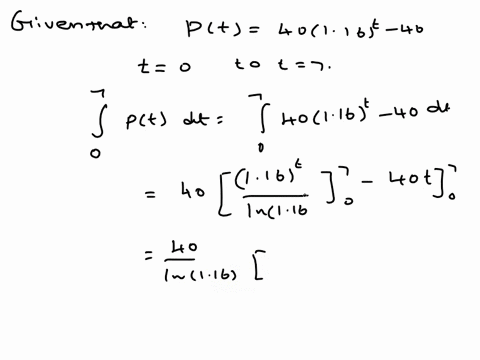 Given that: P(t) = 40(1.16)^t - 40
t = 0 to t = 7.
∫_0^7 P(t) dt = ∫_0^7 40(1.16)^t - 40 dt
= 40 [ (1.16)^t / ln(1.16 ]_0^7 - 40t ]_0^7
= 40 / ln(1.16) [